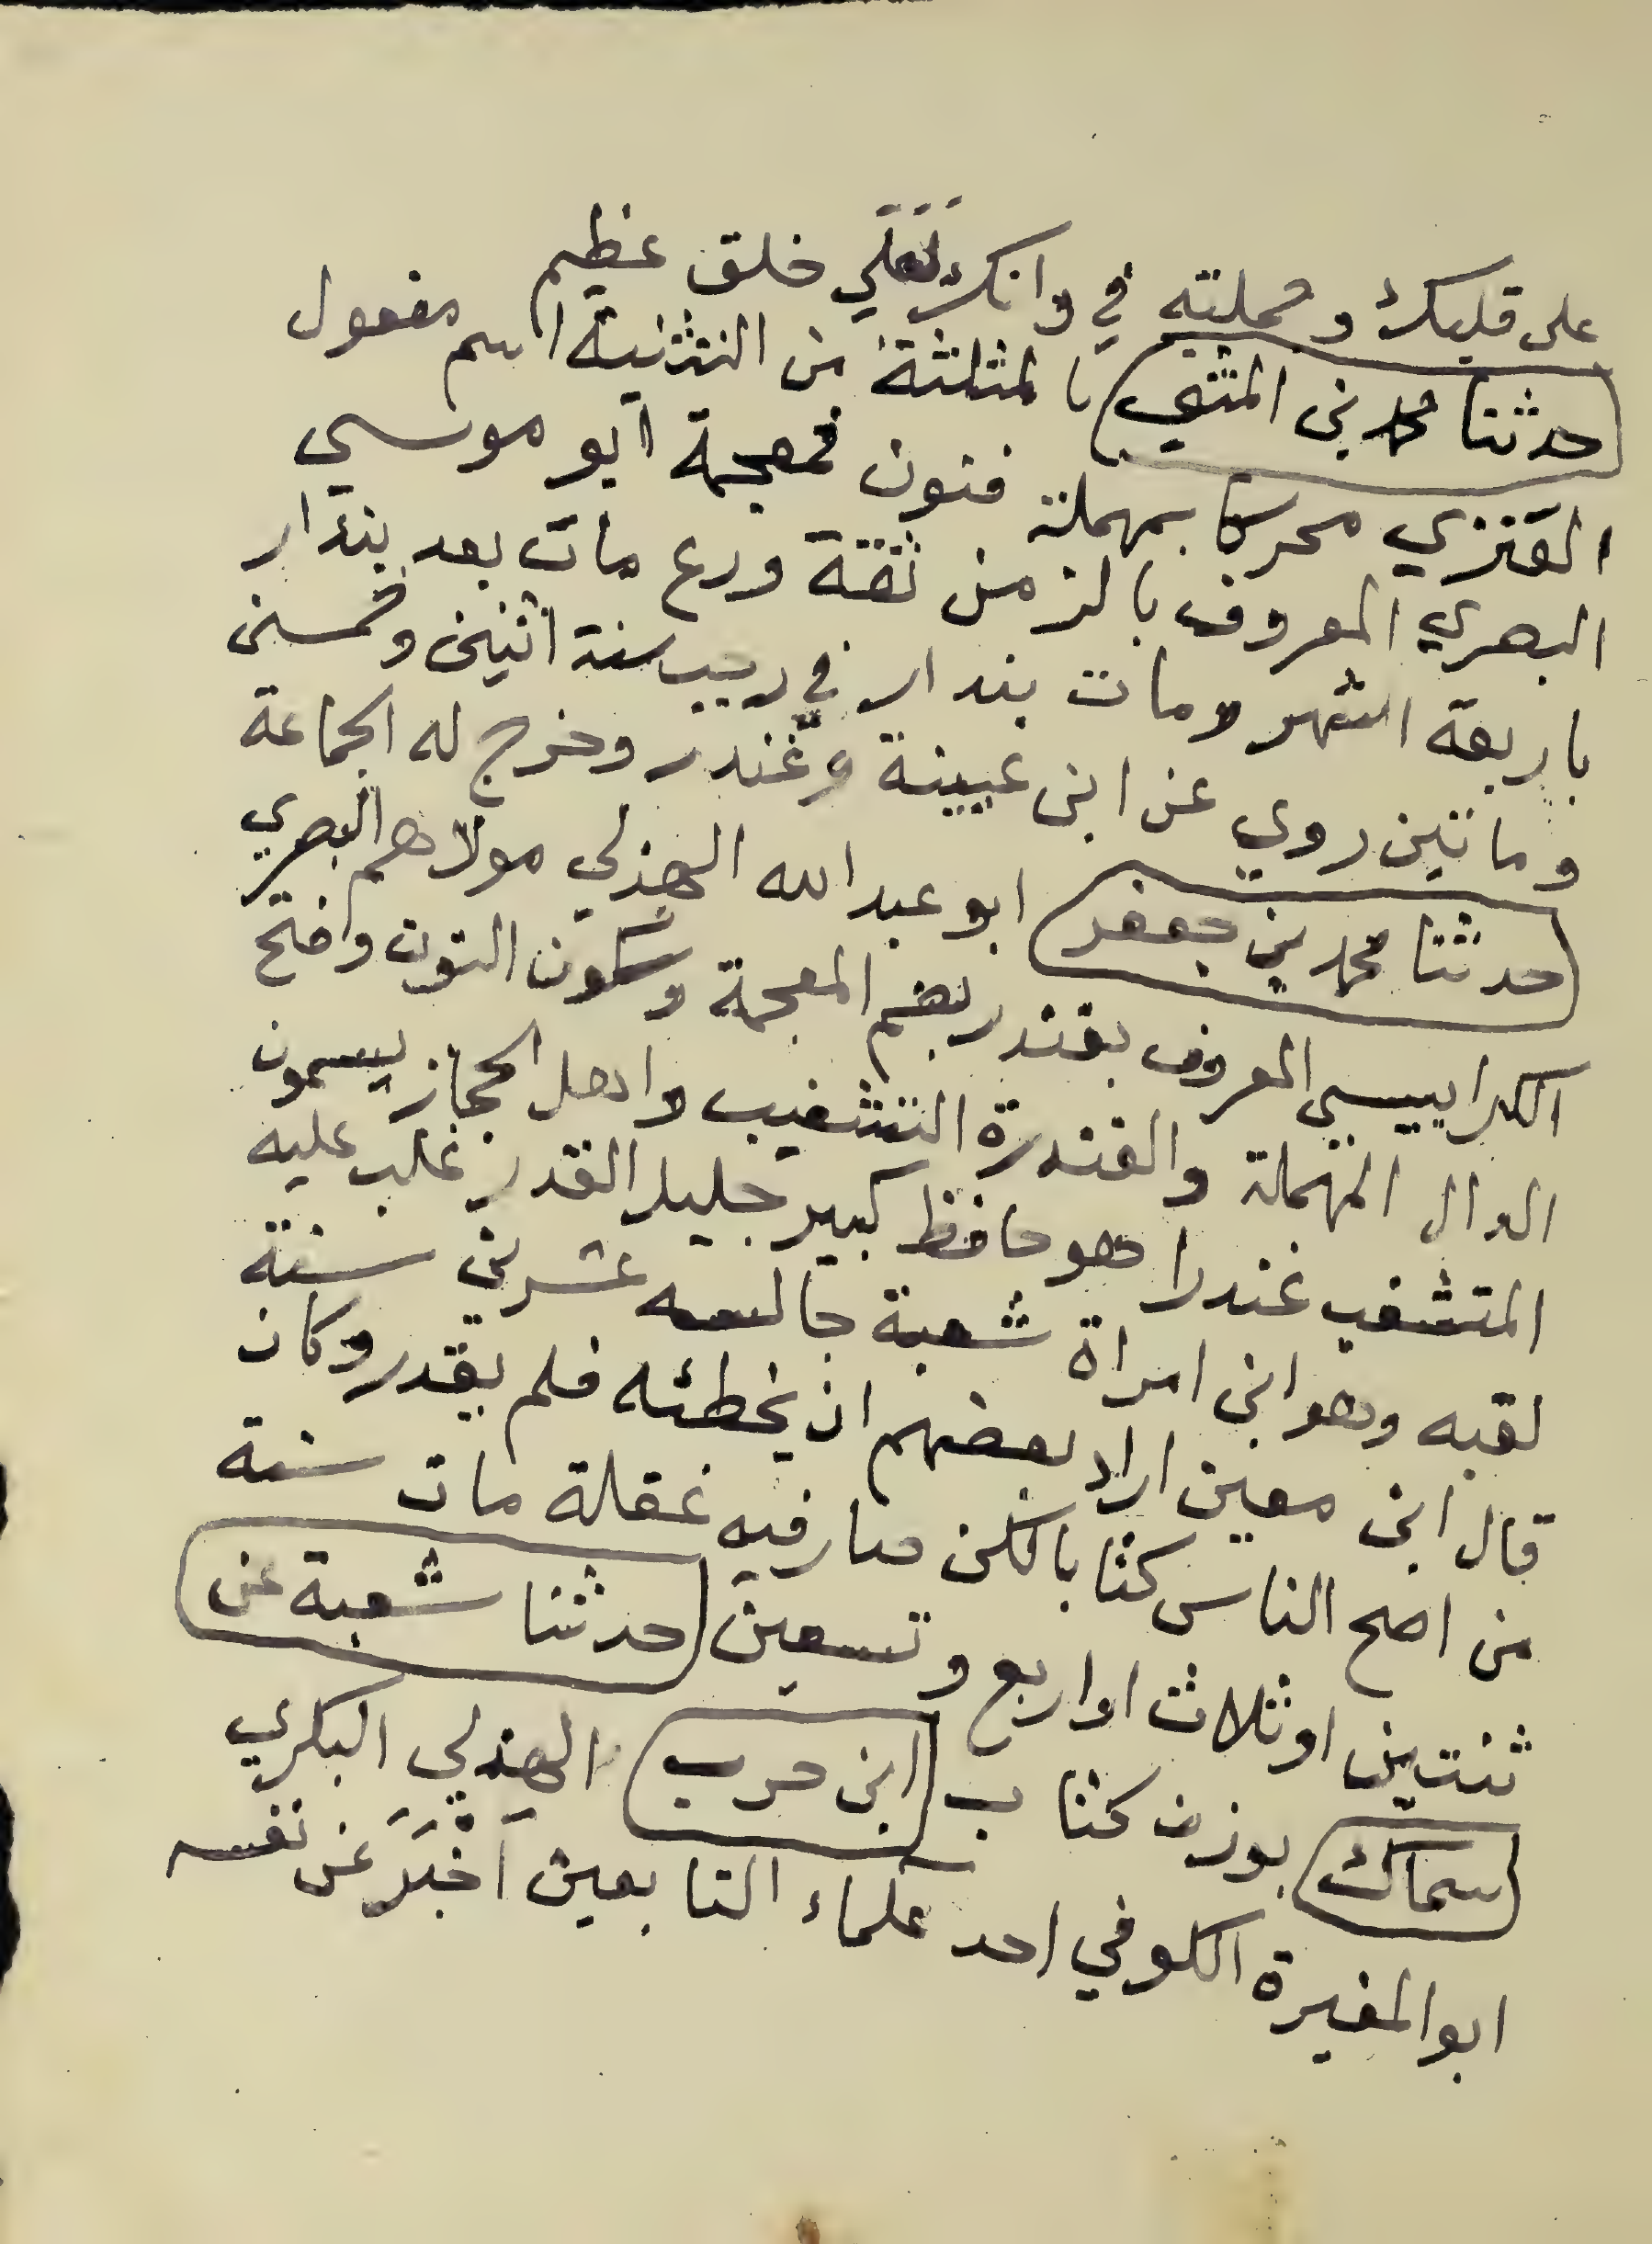 على قلبك وجملته في وانك لَعَلَي خلق عظيم
حدثنا محمد بن المثني بالمثلثة من التثنية اسم مفعول
العَنَزي محركا بمهملة فنون فمعجمة ابو موسي
البصري المعروف بالزمن ثقة ورع مات بعد بندار
باربعة اشهر ومات بندار في رجب سنة اثنين وخمسين
ومائتين روي عن ابن عيينة وغندر وخرج له الجماعة
حدثنا محمد بن جعفر ابو عبد الله الهذلي مولاهم البصري
الكرابيسي المعروف بغندر بضم المعجمة وسكون النون وفتح
الدال المهملة والغندرة التشغيب واهل الحجاز يسمون
المتشغب غندرا وهو حافظ كبير جليل القدر غلب عليه
لقبه وهو ابن امراة شعبة جالسه عشرين سنة
قال ابن معين اراد بعضهم ان يخطئه فلم يقدر وكان
من اصح الناس كتابا لكن صار فيه غفلة مات سنة
ثنتين او ثلاث او اربع وتسعين حدثنا شعبة عن
سماك بوزن كتاب ابن حرب الهذلي البكري
ابو المغيرة الكوفي احد علماء التابعين اَخْبَرَ عن نفسه